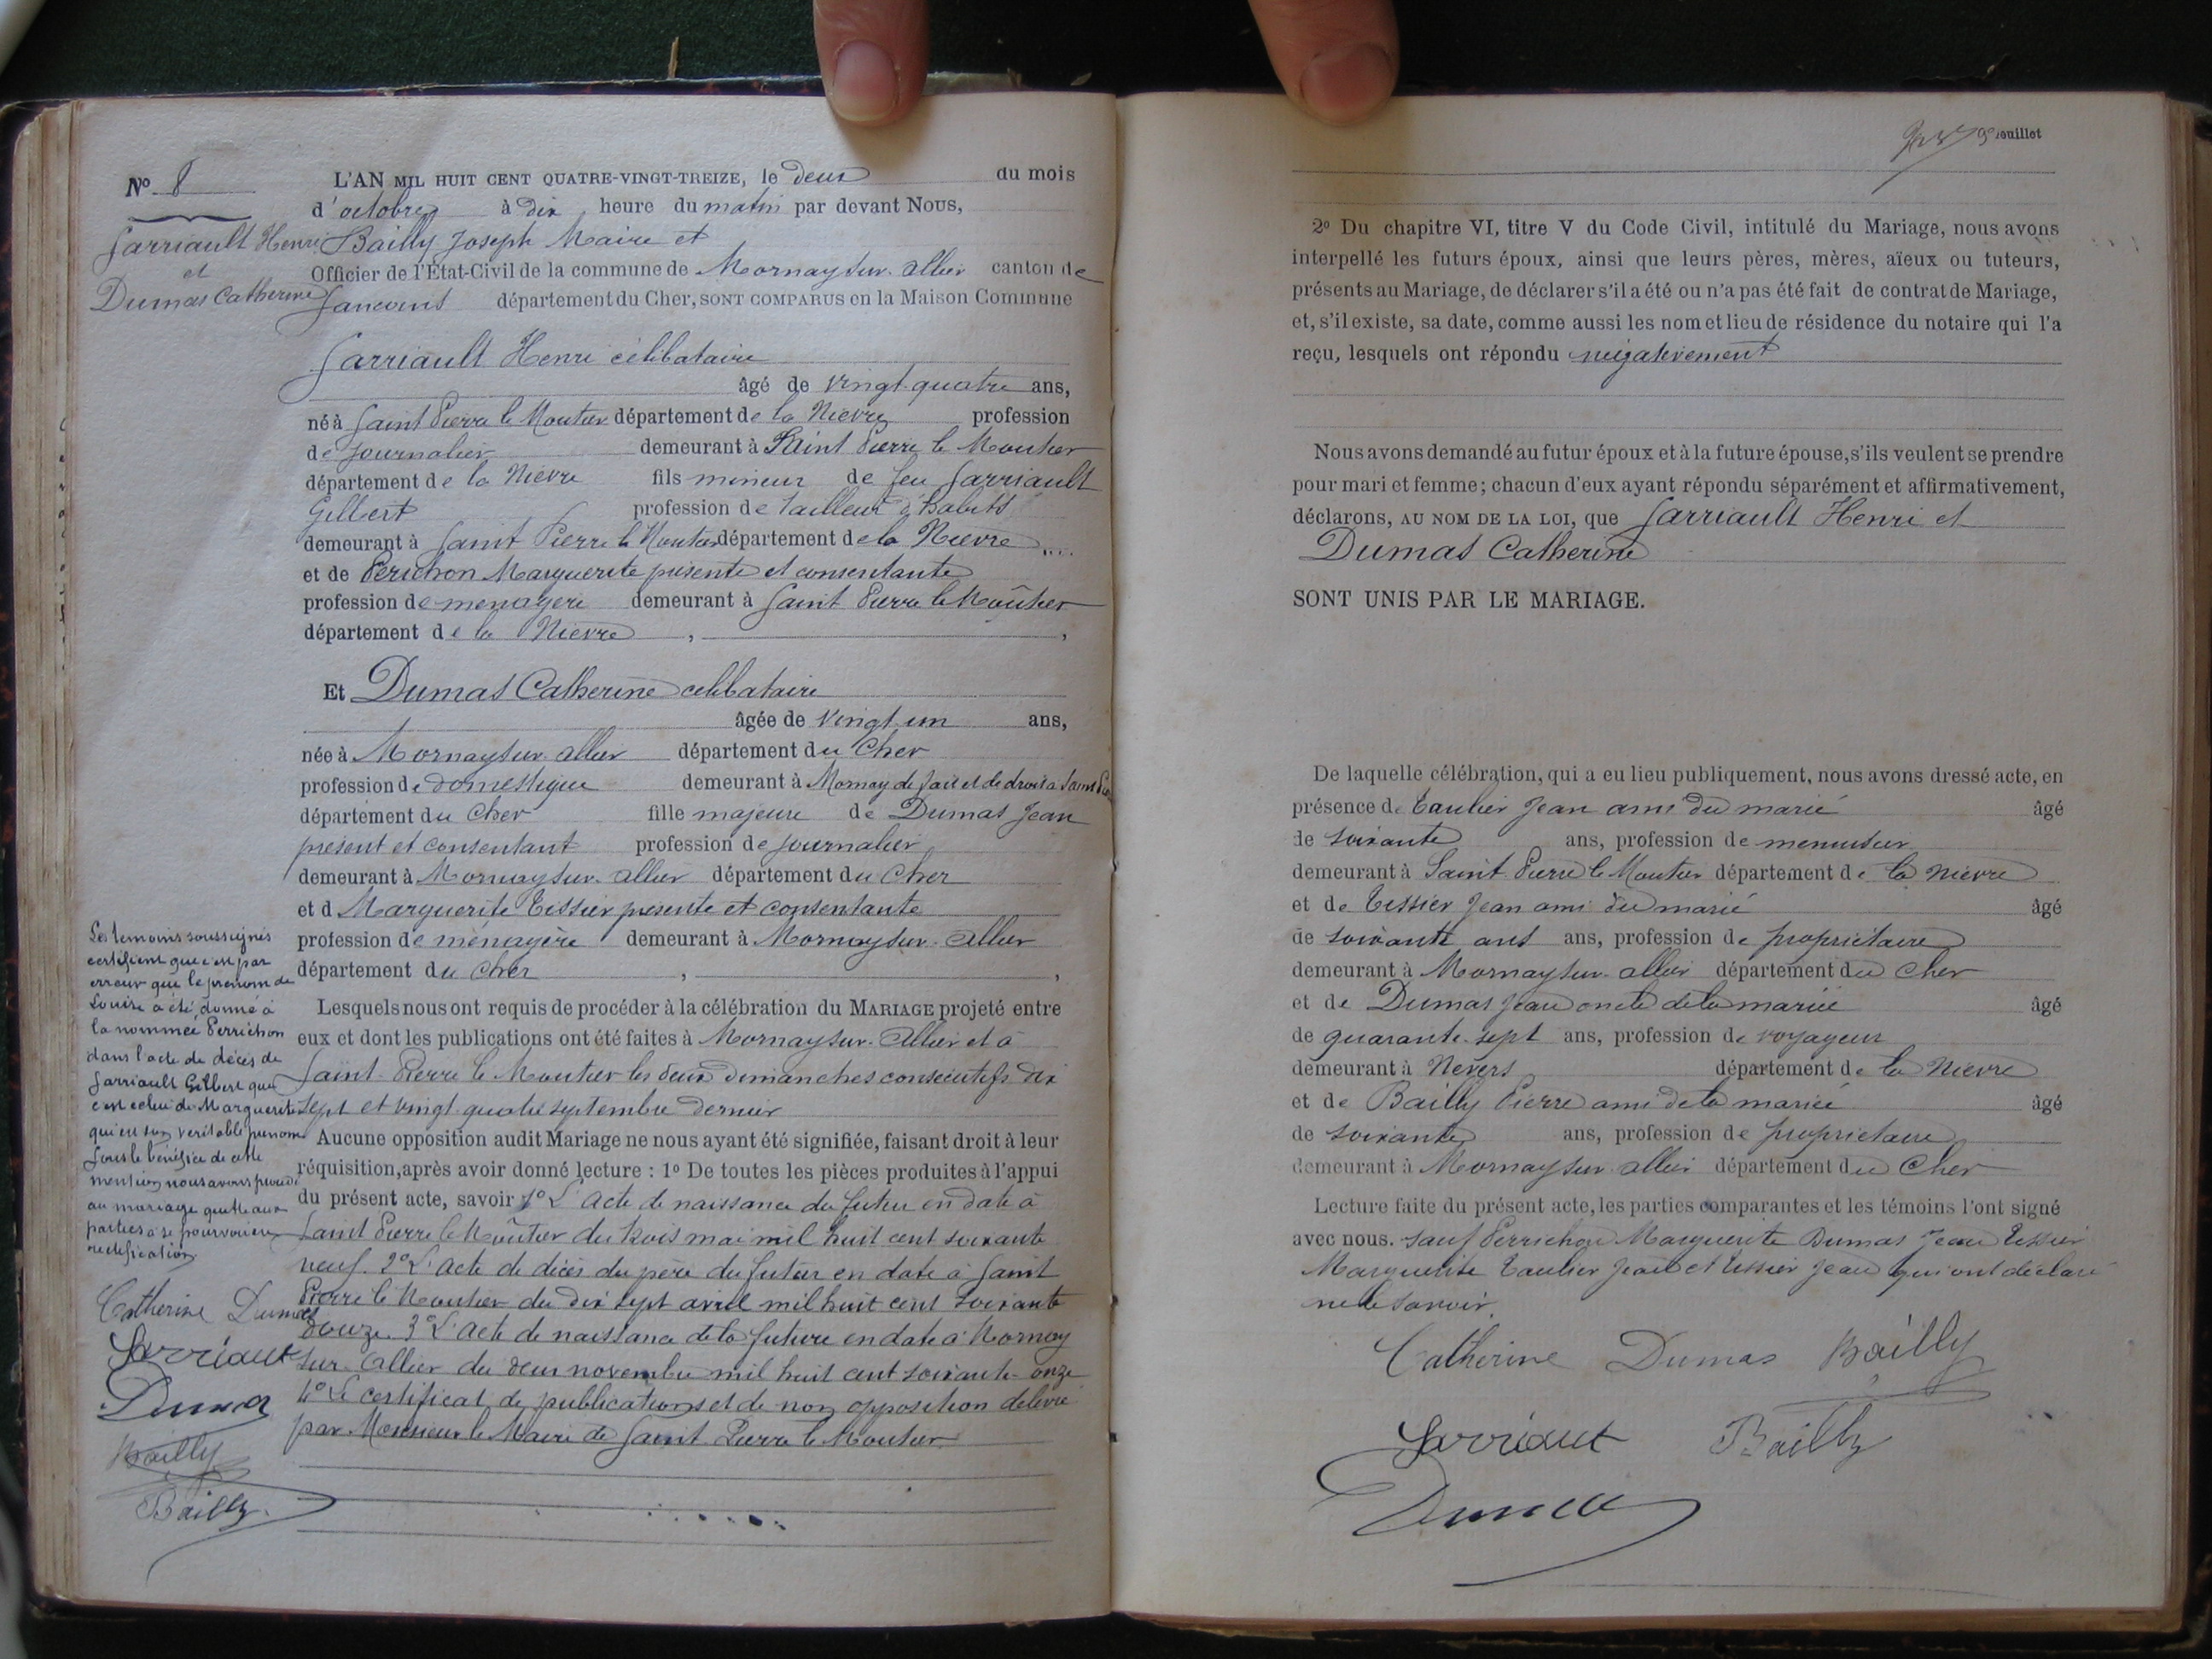 No 8
Sarriault Henri
et
Dumas Catherine
L'AN MIL HUIT CENT QUATRE-VINGT-TREIZE, le deux du mois
d'octobre à dix heure du matin par devant Nous,
Bailly Joseph Maire et
Officier de l'État-Civil de la commune de Mornay sur Allier canton de
Sancoins département du Cher, SONT COMPARUS en la Maison Commune
Sarriault Henri célibataire
âgé de vingt-quatre ans,
né à Saint Pierre le Moutier département de la Nièvre profession
de journalier demeurant à Saint Pierre le Moutier
département de la Nièvre fils mineur de feu Sarriault
Gilbert profession de tailleur d'habits
demeurant à Saint Pierre le Moutier département de la Nièvre
et de Perichon Marguerite présente et consentante
profession de menagère demeurant à Saint Pierre le Moûtier
département de la Nièvre,
Et Dumas Catherine celibataire
âgée de vingt un ans,
née à Mornay sur Allier département du Cher
profession de domestique demeurant à Mornay de fait et de droit à Saint
département du Cher fille majeure de Dumas Jean
présent et consentant profession de journalier
demeurant à Mornay sur Allier département du Cher
et d Marguerite Tissier présente et consentante
profession de ménagère demeurant à Mornay sur Allier
département du Cher,
Lesquels nous ont requis de procéder à la célébration du MARIAGE projeté entre
eux et dont les publications ont été faites à Mornay sur Allier et à
Saint Pierre le Moutier les deux dimanches consécutifs dix
sept et vingt quatre septembre dernier
Aucune opposition audit Mariage ne nous ayant été signifiée, faisant droit à leur
réquisition, après avoir donné lecture : 1o De toutes les pièces produites à l'appui
du présent acte, savoir 1o L'acte de naissance du futur en date à
Saint Pierre le Moûtier du trois mai mil huit cent soixante
neuf. 2o L'acte de décès du père du futur en date à Saint
Pierre le Moutier du dix sept avril mil huit cent soixante
douze. 3o L'acte de naissance de la future en date à Mornay
sur Allier du deux novembre mil huit cent soixante-onze
4o Le certificat de publications et de non opposition délivré
par Monsieur le Maire de Saint Pierre le Moutier
Les témoins soussignés
certifient que c'est par
erreur que le prénom de
Louise a été donné à
la nommée Perrichon
dans l'acte de décès de
Sarriault Gilbert que
c'est celui de Marguerite
qui est son véritable prénom
Sous le bénéfice de cette
mention nous avons procédé
au mariage quitte aux
parties à se pourvoir en
rectification
Catherine Dumas
Sarriaut
Dumas
Bailly
Bailly
feuillet
2o Du chapitre VI, titre V du Code Civil, intitulé du Mariage, nous avons
interpellé les futurs époux, ainsi que leurs pères, mères, aïeux ou tuteurs,
présents au Mariage, de déclarer s'il a été ou n'a pas été fait de contrat de Mariage,
et, s'il existe, sa date, comme aussi les nom et lieu de résidence du notaire qui l'a
reçu, lesquels ont répondu négativement
Nous avons demandé au futur époux et à la future épouse, s'ils veulent se prendre
pour mari et femme; chacun d'eux ayant répondu séparément et affirmativement,
déclarons, AU NOM DE LA LOI, que Sarriault Henri et
Dumas Catherine
SONT UNIS PAR LE MARIAGE.
De laquelle célébration, qui a eu lieu publiquement, nous avons dressé acte, en
présence de Taulier Jean ami du marié âgé
de soixante ans, profession de menuisier
demeurant à Saint Pierre le Moutier département de la Nièvre
et de Tissier Jean ami du marié âgé
de soixante ans ans, profession de propriétaire
demeurant à Mornay sur Allier département du Cher
et de Dumas Jean oncle de la mariée âgé
de quarante-sept ans, profession de voyageur
demeurant à Nevers département de la Nièvre
et de Bailly Pierre ami de la mariée âgé
de soixante ans, profession de propriétaire
demeurant à Mornay sur Allier département du Cher
Lecture faite du présent acte, les parties comparantes et les témoins l'ont signé
avec nous. sauf Perrichon Marguerite Dumas Jean Tissier
Marguerite Taulier Jean et Tissier Jean qui ont déclaré
ne le savoir.
Catherine Dumas Bailly
Sarriaut Bailly
Dumas